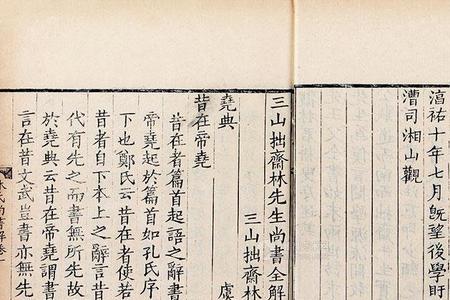 淳祐十年七月旣望後學盱
漕司湘山觀
三山拙齋林先生尚書全解
三山拙齋林
堯典
虞
昔在帝堯
昔在者篇首起語之辭書
帝堯起於篇首如孔氏序
下也鄭氏云昔在者使若
昔者自下本上之辭言昔
代有先之而書無所先故
於堯典云昔在帝堯謂書
言在昔文武豈書亦無先
林氏尚書解卷一